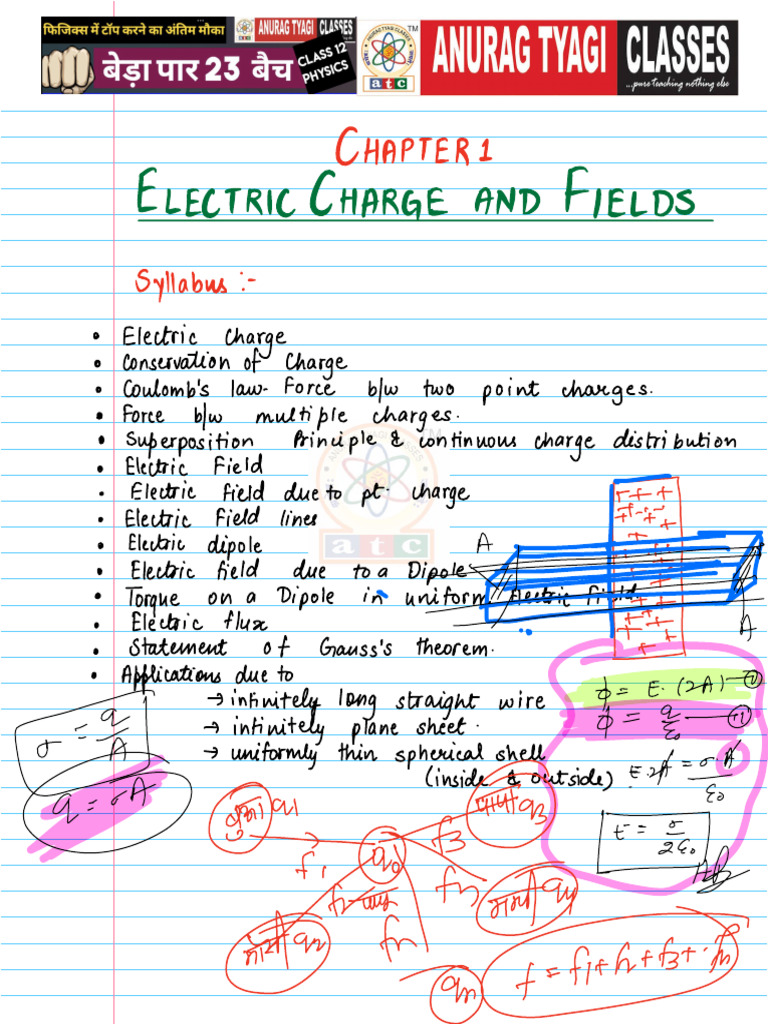 फिजिक्स में टॉप करने का अंतिम मौका
ANURAG TYAGI CLASSES
बेड़ा पार 23 बैच
CLASS 12
PHYSICS
atc
TM
ANURAG TYAGI CLASSES
...pure teaching nothing else
CHAPTER 1
ELECTRIC CHARGE AND FIELDS
Syllabus :-
• Electric Charge
• Conservation of Charge
• Coulomb's law- Force b/w two point charges.
• Force b/w multiple charges.
• Superposition Principle & continuous charge distribution
• Electric Field
• Electric field due to pt. charge
• Electric Field lines
• Electric dipole
• Electric field due to a Dipole
• Torque on a Dipole in uniform Electric field
• Electric flux
• Statement of Gauss's theorem.
• Applications due to
→ infinitely long straight wire
→ infinitely plane sheet.
→ uniformly thin spherical shell
(inside & outside)
atc
A
A
σ = q/A
q = σA
ϕ = E. (2A) — (i)
ϕ = q/ε0 — (ii)
E. 2A = σ. A/ε0
E = σ/2ε0
q1
f1
q0
f3
q3
f2
q2
fn
qn
f = f1 + f2 + f3 + . fn